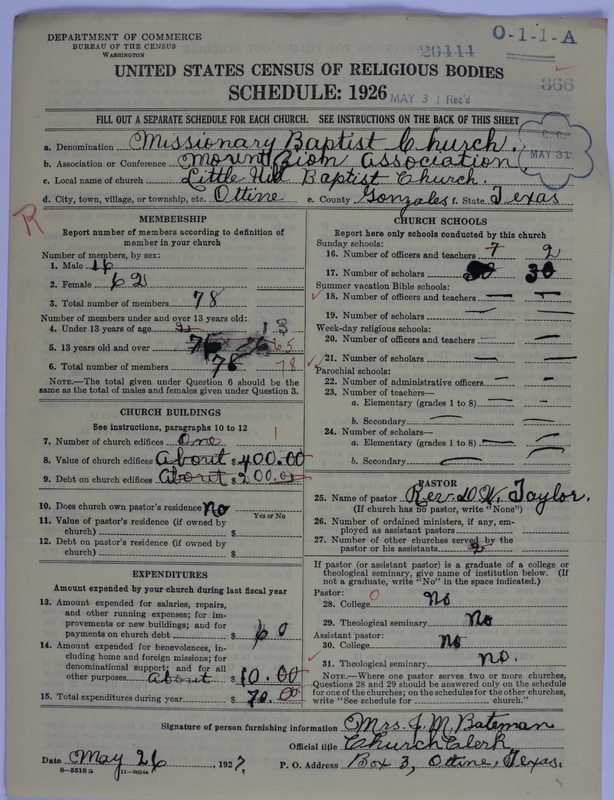 DEPARTMENT OF COMMERCE
BUREAU OF THE CENSUS
WASHINGTON
20444
O-1-1-A
UNITED STATES CENSUS OF RELIGIOUS BODIES
366
SCHEDULE: 1926
MAY 31 Rec'd
FILL OUT A SEPARATE SCHEDULE FOR EACH CHURCH. SEE INSTRUCTIONS ON THE BACK OF THIS SHEET
a. Denomination Missionary Baptist Church.
b. Association or Conference Mount Zion Association
MAY 31
c. Local name of church Little Hill Baptist Church.
d. City, town, village, or township, etc. Ottine e. County Gonzales f. State Texas
R
MEMBERSHIP
Report number of members according to definition of member in your church
Number of members, by sex:
1. Male 16
2. Female 62
3. Total number of members 78
Number of members under and over 13 years old:
4. Under 13 years of age
5. 13 years old and over 65
6. Total number of members 78 78
NOTE.—The total given under Question 6 should be the same as the total of males and females given under Question 3.
CHURCH BUILDINGS
See instructions, paragraphs 10 to 12
7. Number of church edifices One 1
8. Value of church edifices About $ 400.00
9. Debt on church edifices About $ 200.00
10. Does church own pastor's residence No
Yes or No
11. Value of pastor's residence (if owned by church) $
12. Debt on pastor's residence (if owned by church) $
EXPENDITURES
Amount expended by your church during last fiscal year
13. Amount expended for salaries, repairs, and other running expenses; for improvements or new buildings; and for payments on church debt $ 60
14. Amount expended for benevolences, including home and foreign missions; for denominational support; and for all other purposes About $ 10.00
15. Total expenditures during year $ 70.00
CHURCH SCHOOLS
Report here only schools conducted by this church
Sunday schools:
16. Number of officers and teachers 7 2
17. Number of scholars 30 30
Summer vacation Bible schools:
18. Number of officers and teachers
19. Number of scholars
Week-day religious schools:
20. Number of officers and teachers
21. Number of scholars
Parochial schools:
22. Number of administrative officers
23. Number of teachers—
a. Elementary (grades 1 to 8)
b. Secondary
24. Number of scholars—
a. Elementary (grades 1 to 8)
b. Secondary
PASTOR
25. Name of pastor Rev. D. W. Taylor.
(If church has no pastor, write "None")
26. Number of ordained ministers, if any, employed as assistant pastors
27. Number of other churches served by the pastor or his assistants 2
If pastor (or assistant pastor) is a graduate of a college or theological seminary, give name of institution below. (If not a graduate, write "No" in the space indicated.)
Pastor: 0
28. College No
29. Theological seminary No
Assistant pastor:
30. College No
31. Theological seminary No.
NOTE.—Where one pastor serves two or more churches, Questions 28 and 29 should be answered only on the schedule for one of the churches; on the schedules for the other churches, write "See schedule for church."
Signature of person furnishing information Mrs. J. M. Bateman
Official title Church Clerk
Date May 26, 1927. P. O. Address Box 3, Ottine, Texas.
8-5518a 11-8054a